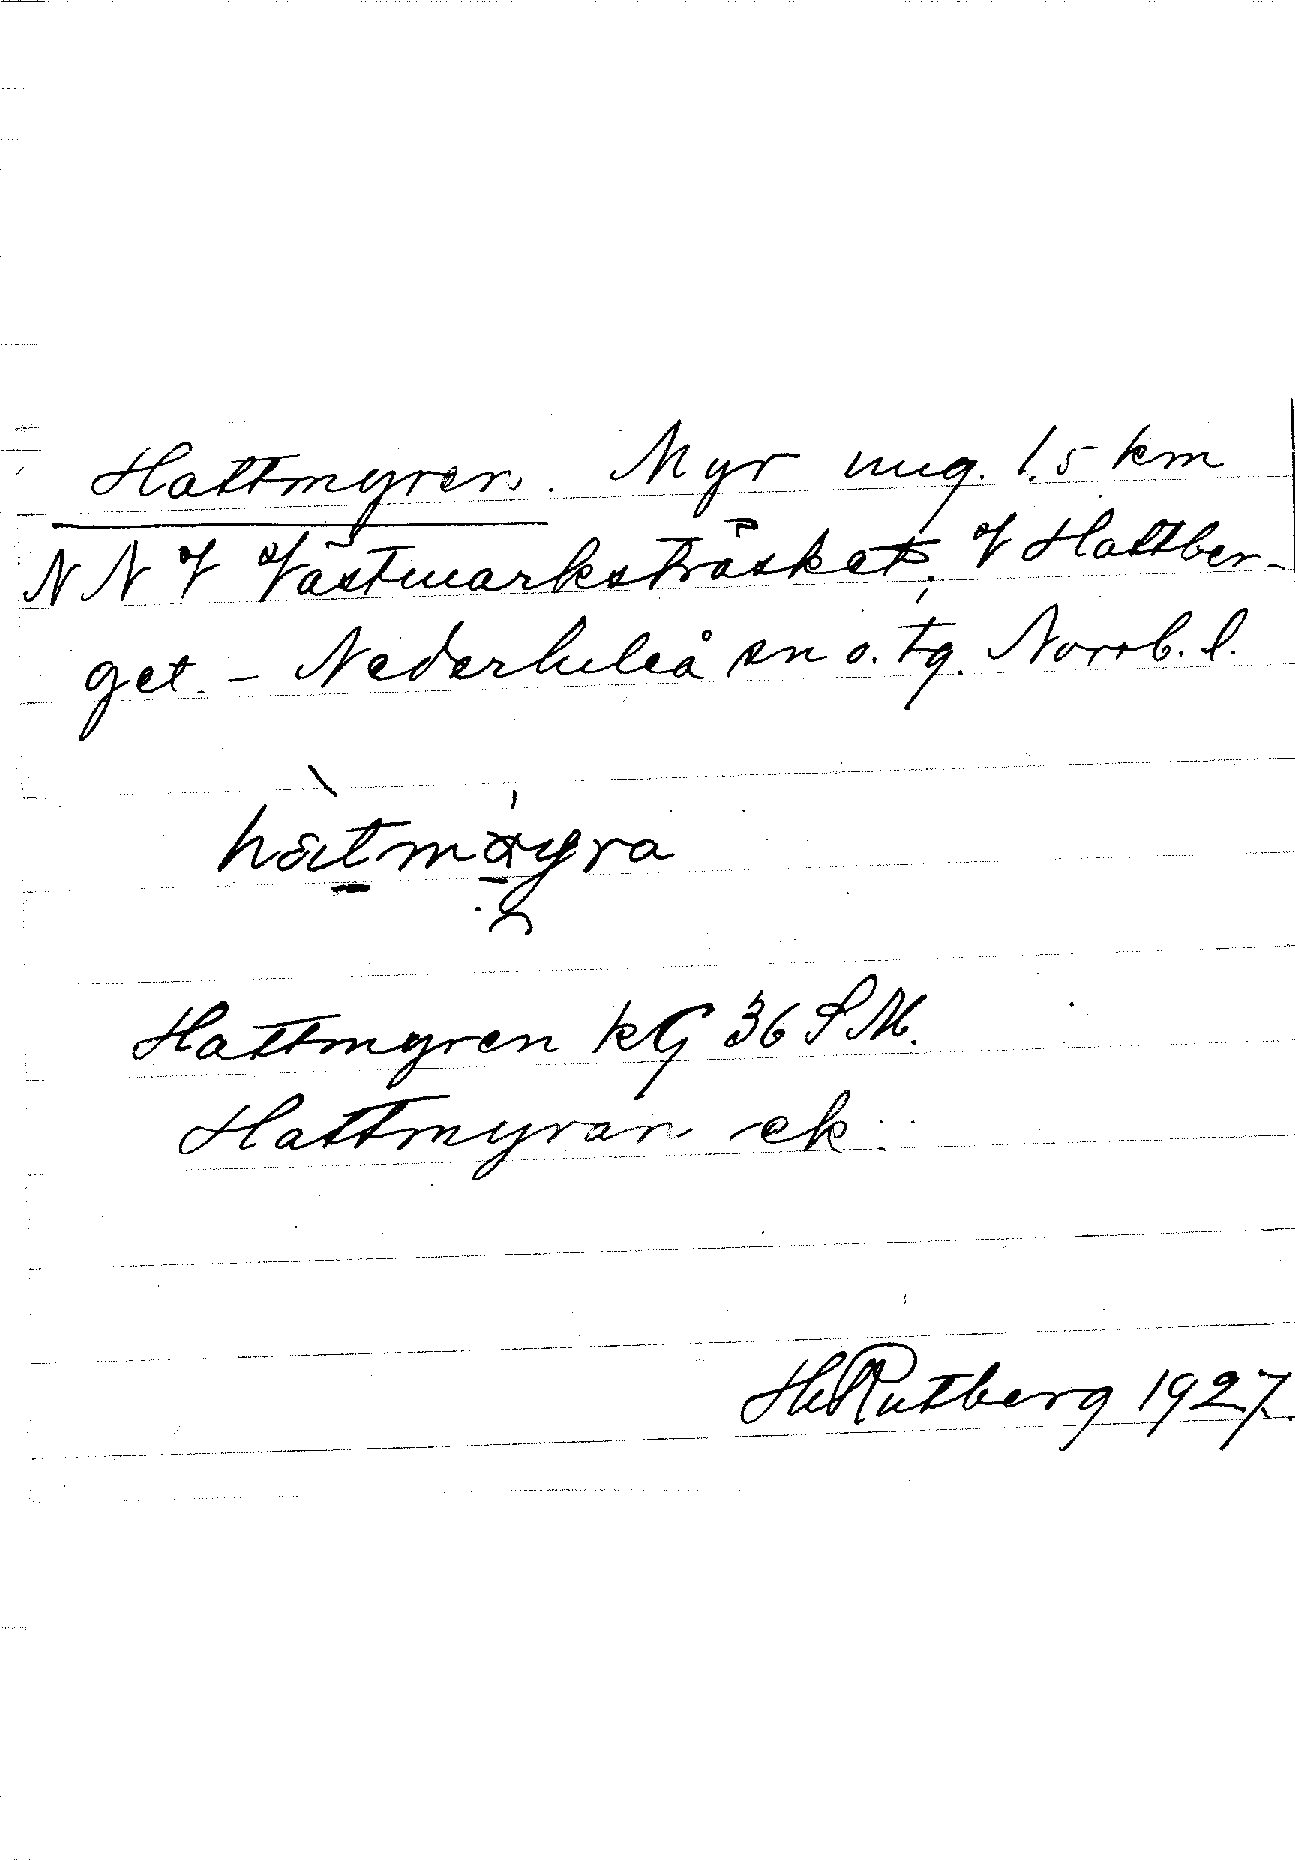 Hattmyren. Myr ung. 1.5 km
NNV Västmarksträsket, V Hattber-
get. - Nederluleå sn o. tg. Norrb. l.
Hattmyren kG 36 SM.
Hattmyran ek.
H Rutberg 1927.